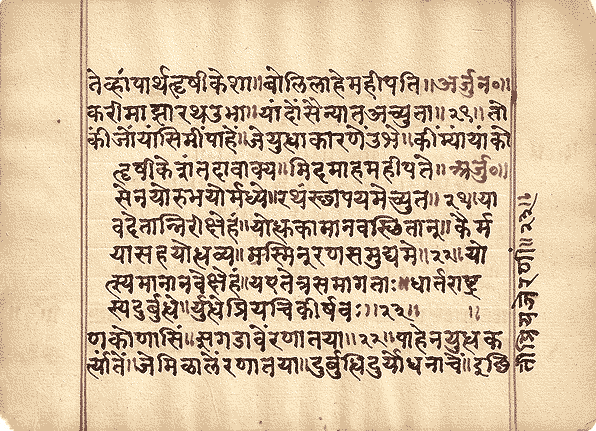 तेव्हां पार्थ हृषीकेशा॥ बोलिला हे महीपति॥ अर्जुन०॥
करी माझा रथ उभा॥ या दों सैन्यात अच्युता॥२१॥ तों
कीं जों यांसि मी पाहें॥ जे युधाकारणें उभे॥ कीं म्यां यां को
हृषीकेशं तदा वाक्य॥ मिदमाह महीपते॥ अर्जु०॥
सेनयोरुभयोर्मध्ये॥ रथं स्छापय मेच्युत॥ २१॥ या
वदेतान्निरीक्षेहं॥ योत्धुकामानवस्छितान्॥ कैर्म
या सह योधव्य॥ मस्मिन् रणसमुद्यमे॥२२॥ यो
त्स्यमानानवेक्षेहं॥ य एतेत्र समागताः॥ धार्तराष्ट्र
स्य दुर्बुधे॥ र्युधे प्रियचिकीर्षवः॥२३॥ ॥
ण कोणासिं॥ झगडावें रणांत या॥२२॥ पाहेन युध क
र्त्यातें॥ जे मिळालें रणांत या॥ दुर्बुधि दुर्योधनाचें॥ इछि
ती प्रिय जे रणीं॥२३॥